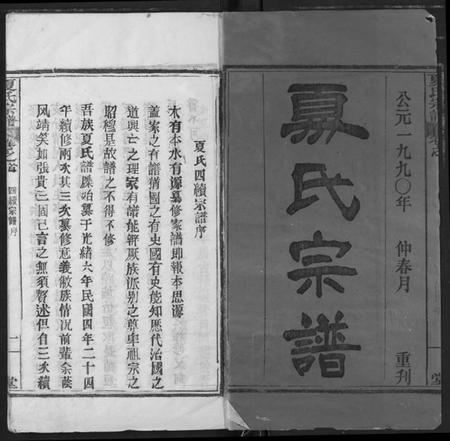 公元一九九〇年 仲春月 重刊
夏氏宗譜
夏氏四續宗譜序
木有本水有源纂修家譜即報本思源
蓋家之有譜猶國之有史國有史能知歷代治國之
道興亡之理家有譜能辨厥族派别之尊卑祖宗之
昭穆是故譜之不得不修
吾族夏氏譜牒始纂于光緒六年民國四年二十四
年續修兩次其三次纂修意義徽族情况前輩余蔭
風靖矣如張貴三國已言之無須贅述但自三次續
夏氏宗譜 卷之首 四續宗譜序 一 堂